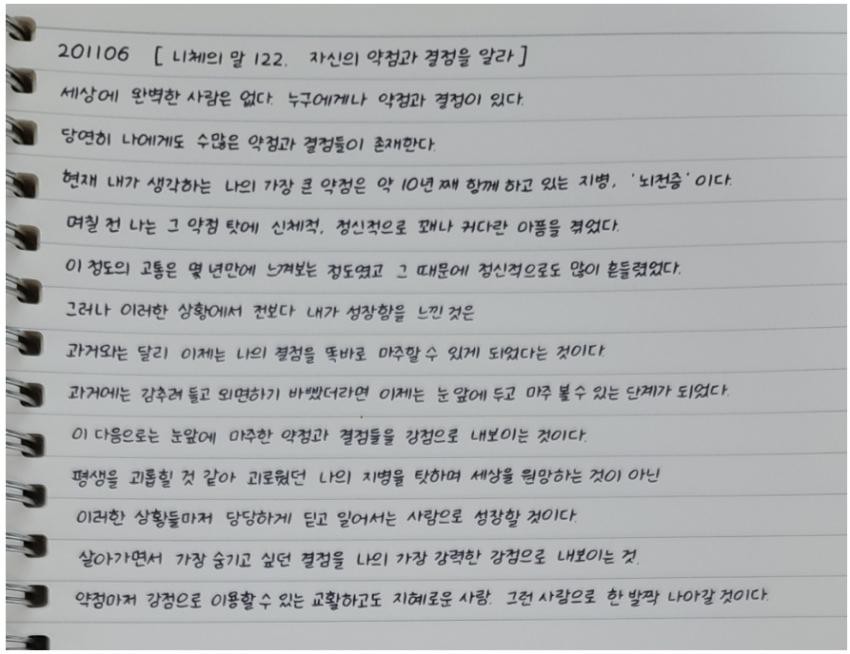 201106 [ 니체의 말 122. 자신의 약점과 결점을 알라 ]
세상에 완벽한 사람은 없다. 누구에게나 약점과 결점이 있다.
당연히 나에게도 수많은 약점과 결점들이 존재한다.
현재 내가 생각하는 나의 가장 큰 약점은 약 10년 째 함께 하고 있는 지병, '뇌전증' 이다.
며칠 전 나는 그 약점 탓에 신체적, 정신적으로 꽤나 커다란 아픔을 겪었다.
이 정도의 고통은 몇 년만에 느껴보는 정도였고 그 때문에 정신적으로도 많이 흔들렸었다.
그러나 이러한 상황에서 전보다 내가 성장함을 느낀 것은
과거와는 달리 이제는 나의 결점을 똑바로 마주할 수 있게 되었다는 것이다.
과거에는 감추려 들고 외면하기 바빴더라면 이제는 눈 앞에 두고 마주 볼 수 있는 단계가 되었다.
이 다음으로는 눈앞에 마주한 약점과 결점들을 강점으로 내보이는 것이다.
평생을 괴롭힐 것 같아 괴로웠던 나의 지병을 탓하며 세상을 원망하는 것이 아닌
이러한 상황들마저 당당하게 딛고 일어서는 사람으로 성장할 것이다.
살아가면서 가장 숨기고 싶던 결점을 나의 가장 강력한 강점으로 내보이는 것.
약점마저 강점으로 이용할 수 있는 교활하고도 지혜로운 사람. 그런 사람으로 한 발짝 나아갈 것이다.